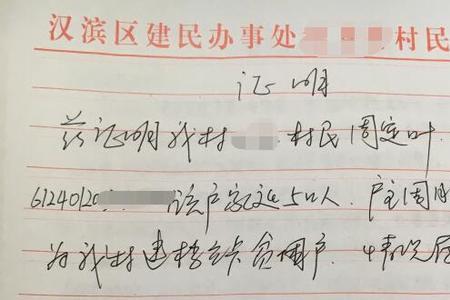 汉滨区建民办事处 村民
证明
兹证明我村 村民周定叶.
61240120 该户家庭5口人. 户主周
为我村建档立卡贫困户. 情况